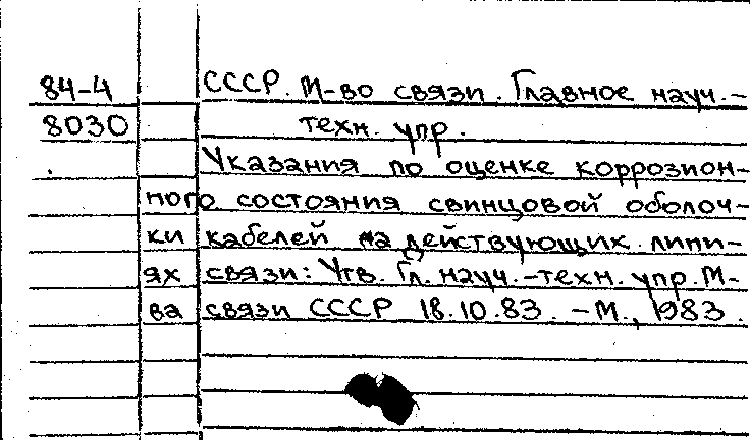 84-4 СССР. М-во связи. Главное науч.-
8030 техн. упр.
Указания по оценке коррозион-
ного состояния свинцовой оболоч-
ки кабелей на действующих лини-
ях связи: Утв. Гл. науч.-техн. упр. М-
ва связи СССР 18.10.83. - М., 1983.